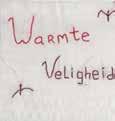 Warmte
Veligheid